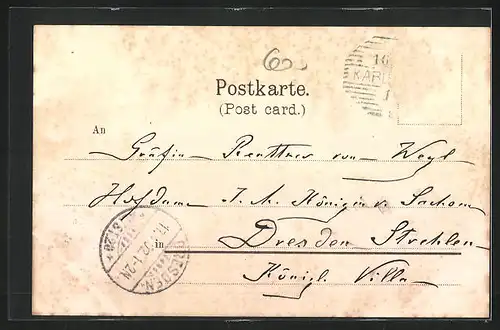 60
16
KARL
1
Postkarte.
(Post card.)
An
Gräfin Reuttner von Weyl
Hofdame I. M. Königin v. Sachsen
in Dresden Strehlen
Königl. Villa
DRESDEN